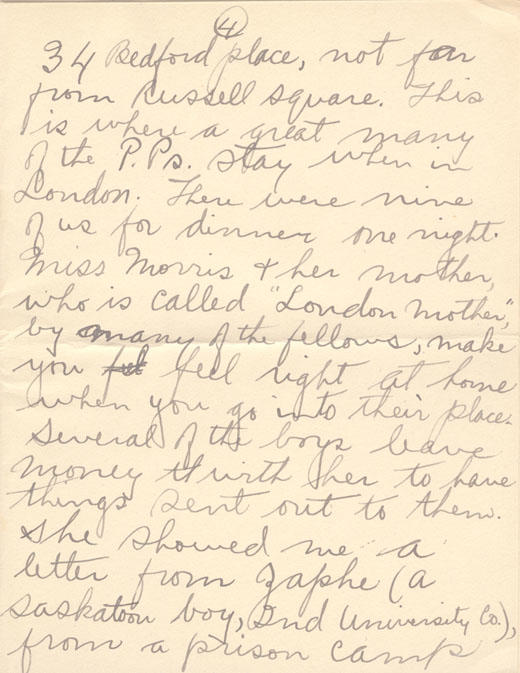 4
34 Bedford place, not far
from Russell Square. This
is where a great many
of the P.Ps. stay when in
London. There were nine
of us for dinner one night.
Miss Morris & her mother,
who is called "London Mother",
by many of the fellows, make
you feel right at home
when you go into their place.
Several of the boys leave
money with her to have
things sent out to them.
She showed me a
letter from Zaphe (a
Saskatoon boy, 2nd University Co.),
from a prison camp